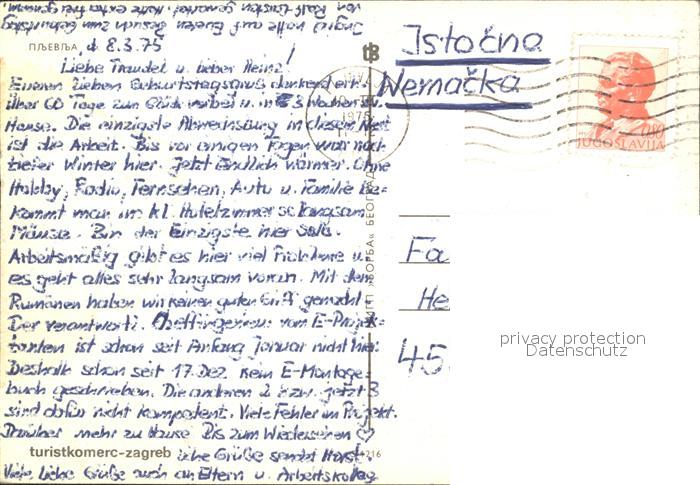 ПЉЕВЉА d. 8.3.75
Liebe Traudel u. lieber Heinz!
Eueren lieben Geburtstagsgruß dankend erh.
Über 60 Tage zum Glück vorbei u. in 3 Wochen zu
Hause. Die einzigste Abwechslung in diesem Nest
ist die Arbeit. Bis vor einigen Tagen war noch
tiefer Winter hier. Jetzt endlich wärmer. Ohne
Hobby, Radio, Fernsehen, Auto u. Familie be-
kommt man im kl. Hotelzimmer so langsam
Mäuse. Bin der Einzigste hier
Arbeitsmäßig gibt es hier viel Probleme u.
es geht alles sehr langsam voran. Mit den
Rumänen haben wir keinen guten Griff gemacht.
Der verantwortl. Chefingenieur vom E-Projek-
tanten ist schon seit Anfang Januar nicht hier.
Deshalb schon seit 17. Dez. kein E-Montage-
buch geschrieben. Die anderen 2 bzw. jetzt 3
sind dafür nicht kompetent. Viele Fehler im Projekt.
Darüber mehr zu Hause Bis zum Wiedersehen
liebe Grüße sendet Horst.
Viele liebe Grüße auch an Eltern u. Arbeitskolleg
Ingrid hatte auf Eueren Besuch zum Geburtstag
gewartet. Hatte extra frei genomm.
turistkomerc-zagreb
БЕОГРАД
4216
Istočna
Nemačka
1975
0,80
JUGOSLAVIJA
Fa
He
45
privacy protection
Datenschutz